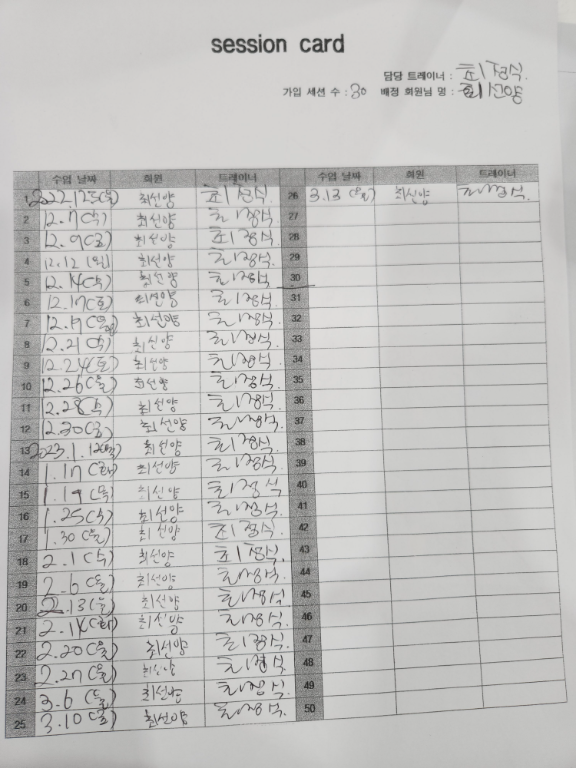 session card
담당 트레이너 : 최정식
가입 세션 수 : 30 배정 회원님 명 : 최선양
수업 날짜 회원 트레이너 수업 날짜 회원 트레이너
1 2022.12.5(월) 최선양 최정식 26 3.13(월) 최선양 최정식
2 12.7(수) 최선양 최정식 27
3 12.9(금) 최선양 최정식 28
4 12.12(월) 최선양 최정식 29
5 12.14(수) 최선양 최정식 30
6 12.17(토) 최선양 최정식 31
7 12.19(월) 최선양 최정식 32
8 12.21(수) 최선양 최정식 33
9 12.24(토) 최선양 최정식 34
10 12.26(월) 최선양 최정식 35
11 12.28(수) 최선양 최정식 36
12 12.30(금) 최선양 최정식 37
13 2023.1.12(목) 최선양 최정식 38
14 1.17(화) 최선양 최정식 39
15 1.19(목) 최선양 최정식 40
16 1.25(수) 최선양 최정식 41
17 1.30(월) 최선양 최정식 42
18 2.1(수) 최선양 최정식 43
19 2.6(월) 최선양 최정식 44
20 2.13(월) 최선양 최정식 45
21 2.14(화) 최선양 최정식 46
22 2.20(월) 최선양 최정식 47
23 2.27(월) 최선양 최정식 48
24 3.6(월) 최선양 최정식 49
25 3.10(금) 최선양 최정식 50